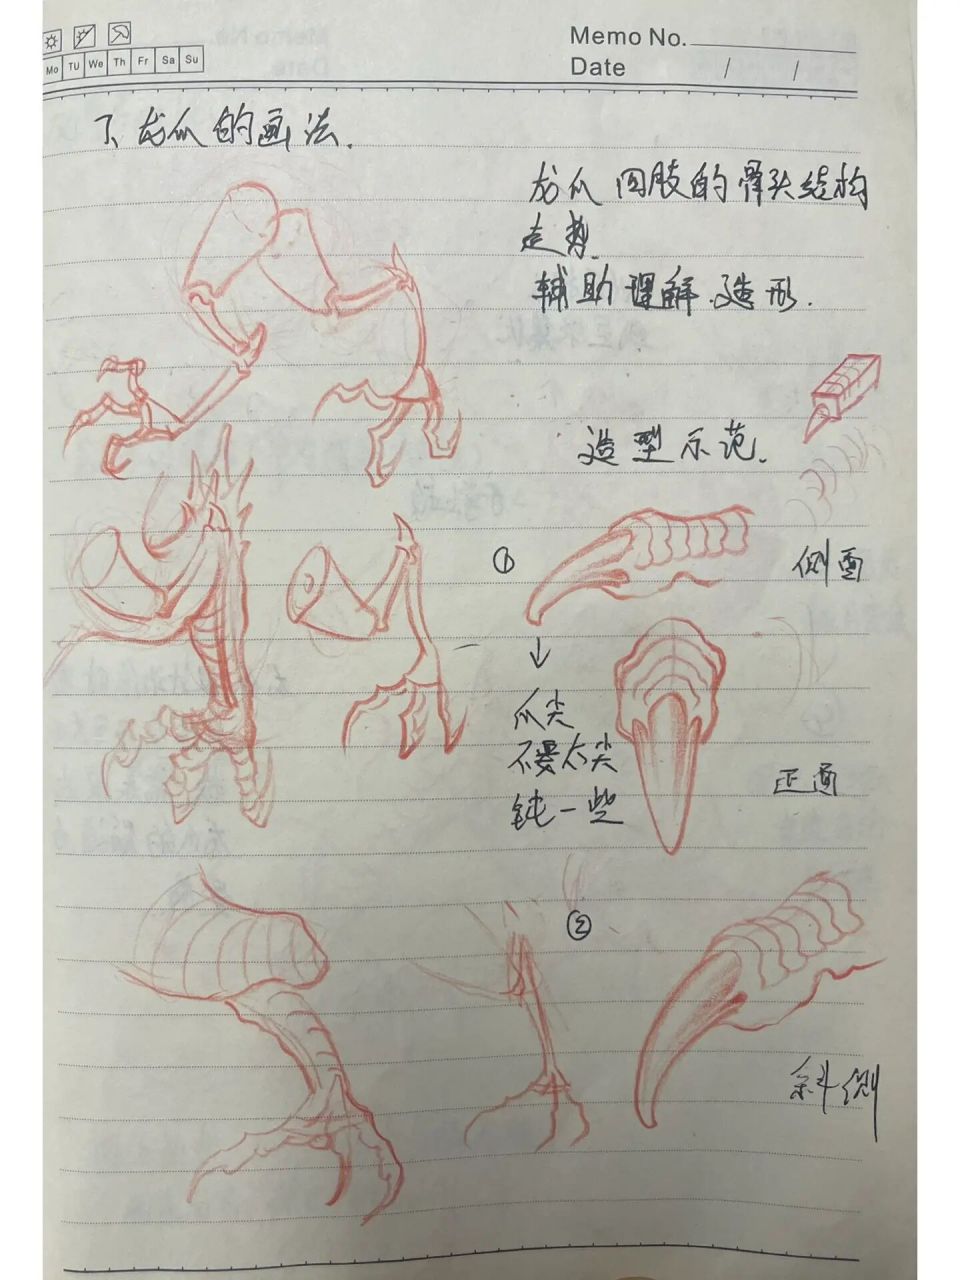 Memo No.
Mo Tu We Th Fr Sa Su
Date / /
龙爪的画法.
龙爪 四肢的骨头结构
走势.
辅助理解.造形.
造型示范.
①
侧面
↓
爪尖
不要太尖
钝一些
正面
②
斜侧